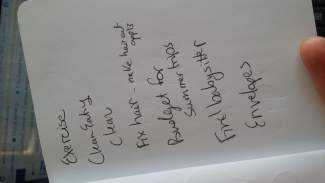 Exercise
Clean Eating
Clean
Fix hair - make haircut
appts
Budget for
summer trips
Find babysitter
Envelopes